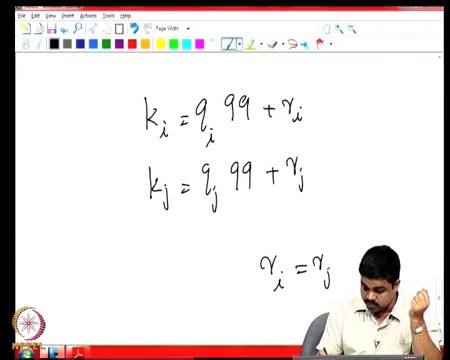 File Edit View Insert Actions Tools Help
Page Width
B I
k_i = q_i 99 + r_i
k_j = q_j 99 + r_j
r_i = r_j
NPTEL